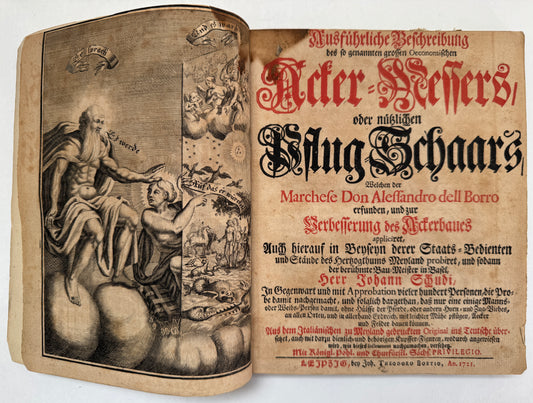 Er sprach
Und es war
Es werde
Auf das er war
Ausführliche Beschreibung
des so genannten grossen Oeconomischen
Acker-Messers/
oder nützlichen
Pflug-Schaars/
Welchen der
Marchese Don Alessandro dell Borro
erfunden, und zur
Verbesserung des Ackerbaues
appliciret,
Auch hierauf in Beyseyn derer Staats-Bedienten
und Stände des Hertzogthums Meyland probiret, und sodann
der berühmte Bau-Meister in Basel,
Herr Johann Schudi,
In Gegenwart und mit Approbation vieler hundert Personen, die Pro-
be damit nachgemacht, und folglich dargethan, daß nur eine einige Manns-
oder Weibs-Person damit, ohne Hülffe der Pferde, oder andern Horn- und Zug-Viehes,
an allen Orten, und in allerhand Erdreich, mit leichter Mühe pflügen, Aecker
und Felder bauen können.
Aus dem Italiänischen zu Meyland gedruckten Original ins Teutsche über-
setzet, auch mit darzu dienlich- und behörigen Kupffer-Figuren, wodurch angewiesen
wird, wie dieses Instrument nachzumachen, versehen.
Mit Königl. Pohl. und Churfürstl. Sächs. PRIVILEGIO.
LEIPZIG, bey Joh. THEODORO BOETIO, An. 1721.